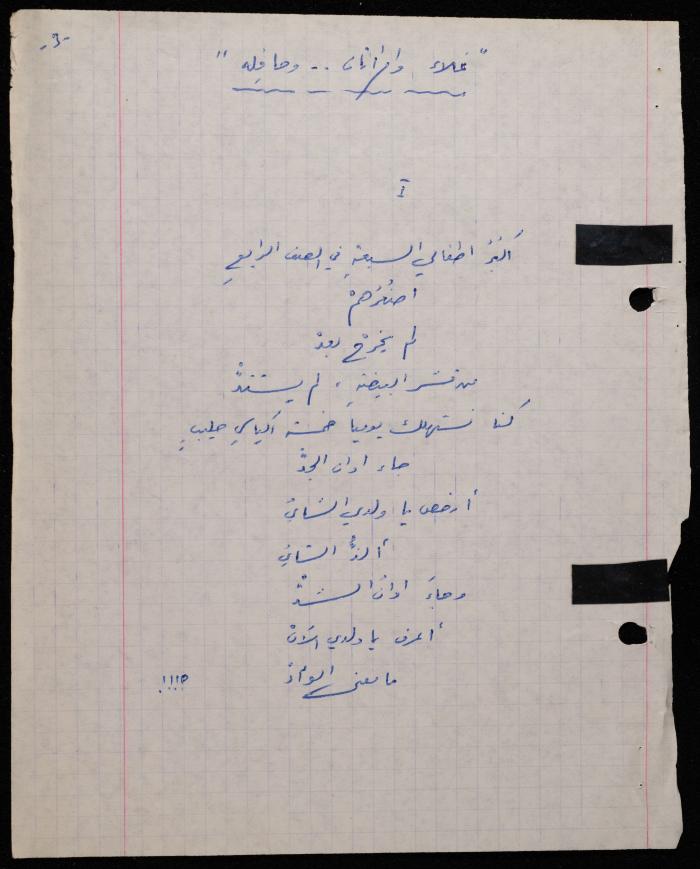 -٣-
"غلاء وامرأتان .. وحافله"
I
أكبَرُ اطفالي السبعةِ في الصف الرابعِ
اصغرَهمْ
لم يخرجْ بعدْ
من قشر البيضةِ ، لم يشتدّْ
كنا نستهلك يوميا خمسة اكياسِ حليبٍ
جاء اوان الجدّْ
أرخص يا ولدي الشايْ
ألذُّ الشايْ
وجاءَ اوانُ الشدّْ
أعرف يا ولدي الآنْ
ما معنى الوأدْ !!!!؟